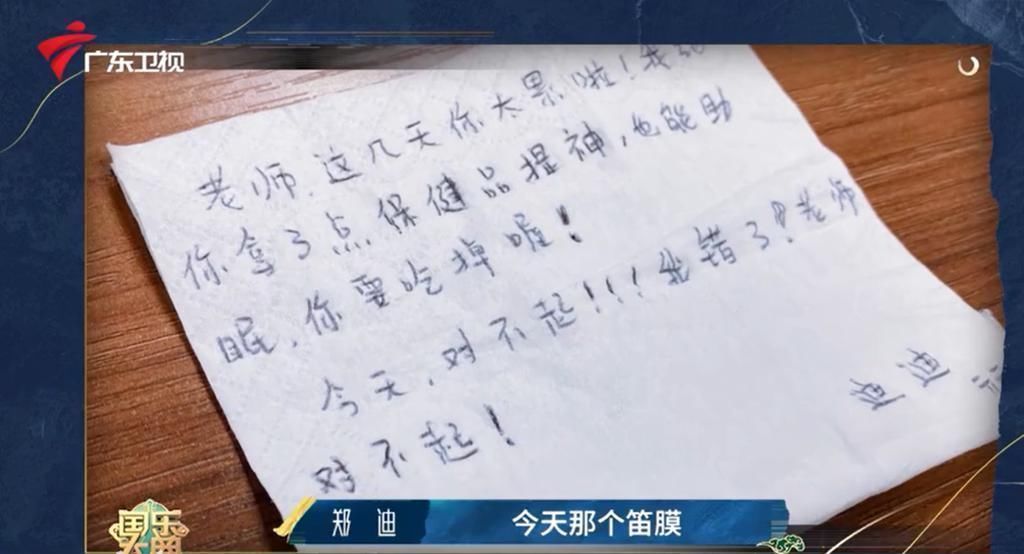 广东卫视
老师.这几天你太累啦!我给
你拿了点保健品提神,也能助
眠,你要吃掉喔!
今天,对不起!!!我错了!老师
对不起!
迪迪
国乐大典
郑迪 今天那个笛膜